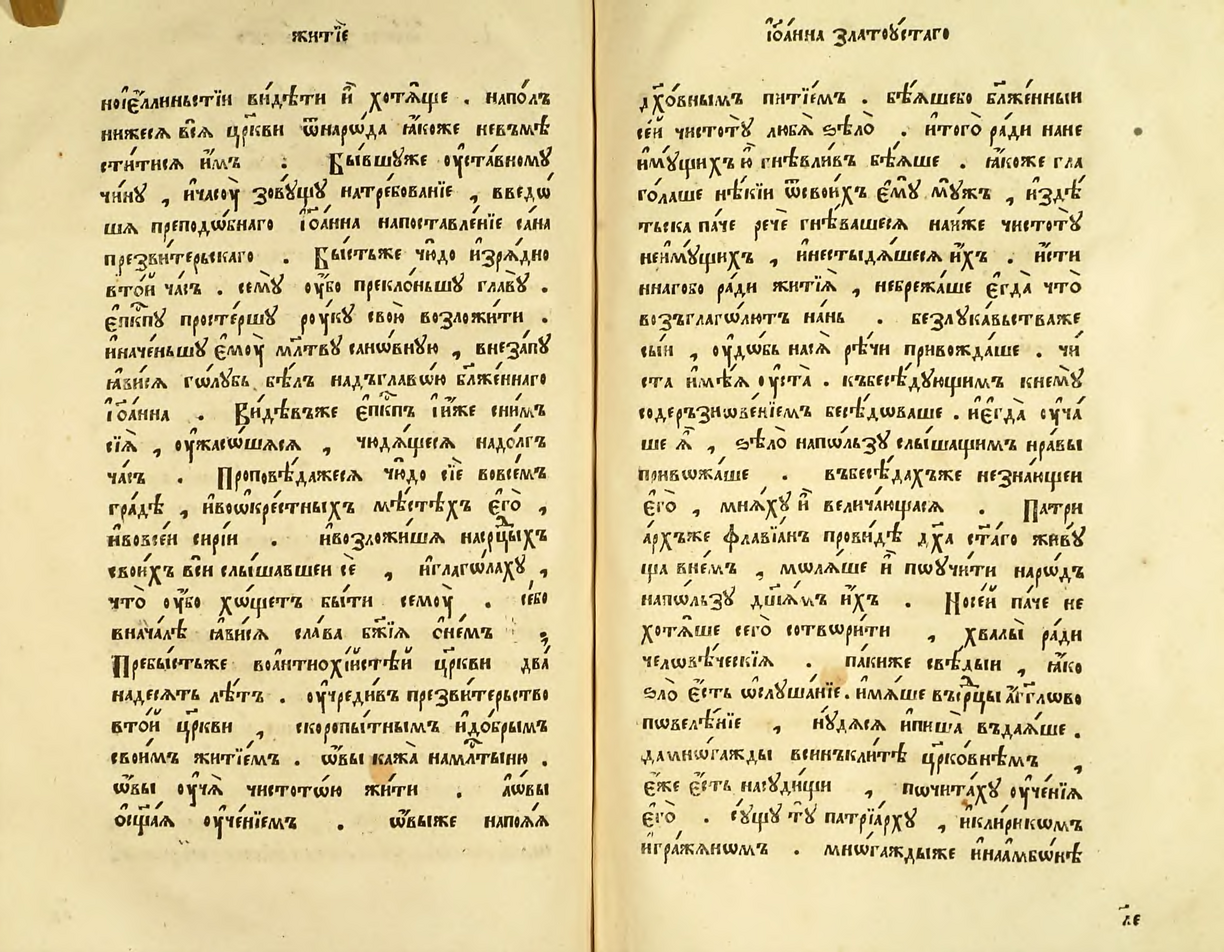 житїе
ноіе́ллиньстїи ви́дѣти и҆̀ хотѧ́ще . напо́лъ
нижесѧ всѧ̀ цр҃кви ѿнарѡ́да ꙗ҆́коже невъмѣ
сти́тисѧ и҆̀мъ : Бы́вшуже ѹ҆ста́вному
чи́нꙋ , и҆часоу̀ зовꙋ́щꙋ натре́бованїе , введѡ́
шѧ преподо́бнаго і҆ѡа́нна напоставле́нїе са́на
презви́терьскаго . Бы́стьже чю́до и҆зрѧ́дно
вто́й ча́съ . семꙋ̀ оу҆́бо прекло́ньшꙋ главꙋ̀ .
є҆пк҃пꙋ просте́ршꙋ роу́кꙋ свою̀ возложи́ти .
и҆наче́ньшꙋ є҆моу̀ мл҃твꙋ сано́вную , внеза́пꙋ
ꙗ҆ви́сѧ го́лꙋбь бѣ́лъ надъглаво́ю бл҃же́ннаго
і҆ѡа́нна . Ви́дѣвъже є҆пк҃пъ і҆и́же сни́мъ
сїѧ̀ , оу҆жасо́шасѧ , чюдѧ́щесѧ надо́лгъ
ча́съ . Проповѣ́дажесѧ чю́до сїѐ вовсе́мъ
гра́дѣ , и҆воѡ҆кре́стныхъ мѣ́стѣхъ є҆го̀ ,
и҆вовсе́и си́рїи . и҆возложи́шѧ насрц҃ы́хъ
свои́хъ вси̑ слы́шавшеи сѐ , и҆глаго́лахꙋ ,
что̀ оу҆́бо хо́щетъ бы́ти семоу̀ . се́бо
внача́лѣ ꙗ҆ви́сѧ сла́ва бж҃їѧ сне́мъ ,
Пребы́стьже воантиохі́йстѣй цр҃кви два̀
надесѧть лѣ́тъ . оу҆чреди́въ презви́терьство
вто́й цр҃кви , скоропы́тнымъ и҆до́брымъ
свои́мъ житїе́мъ . ѡ҆́вы кажа̀ намл҃тыню .
ѡ҆́вы оу҆чѧ̀ чистото́ю жи́ти . а҆ѡ҆́вы
ѻ҆сщаѧ̀ оу҆че́нїемъ . ѡ҆́выже напоѧ́ѧ
і҆ѡа́нна златоꙋстаго
дх҃о́внымъ питїе́мъ . бѣ́ѧшебо бл҃же́нныи
се́й чистотꙋ̀ любѧ̀ ѕѣлѡ̀ . и҆того̀ ра́ди нане
и҆мꙋ́щихъ ю҆̀ гнѣвли́въ бѣ́ѧше . ꙗ҆́коже гла
го́лаше нѣ́кїи ѿсвои́хъ є҆мꙋ̀ мꙋ́жъ , и҆здѣ́
тьска па́че речѐ гнѣ́вашесѧ наи́же чистотꙋ̀
неи҆мꙋ́щихъ , и҆нестыдѧ́шесѧ и҆́хъ . и҆́сти
ннагобо ра́ди житїѧ̀ , небрежа́ше є҆гда̀ что̀
возъглаго́лютъ на́нь . безлꙋка́вьстваже
сы́и , оу҆до́бь насѧ̀ рѣ́чи привожда́ше . чи́
ста и҆мѣ́ѧ оу҆ста̀ . къбесѣ́дующимъ кнемꙋ̀
содеръзнове́нїемъ бесѣ́доваше . и҆є҆гда̀ оу҆ча́
ше ѧ҆̀ , ѕѣло̀ напо́льзꙋ слы́шащимъ нра́вы
привожа́ше . въбесѣ́дахъже незна́ющеи
є҆го̀ , мнѧ́хꙋ и҆̀ велича́ющасѧ . Патри
а́рхъже флавїа́нъ прови́дѣ дх҃а ст҃а́го живꙋ́
ща вне́мъ , молѧ́ше и҆̀ поучи́ти наро́дъ
напо́льзꙋ дш҃а́мъ и҆́хъ . Носе́й па́че не
хотѧ́ше сего̀ сотвори́ти , хвалы̀ ра́ди
человѣ́ческїѧ . па́киже свѣ́дыи , ꙗ҆́ко
ѕло̀ є҆́сть ѡ҆слꙋша́нїе . и҆мѧ́ше въсрц҃ы а҆́гг҃лово
повелѣ́нїе , нꙋ́дѧсѧ и҆писа̀ въдаѧ́ше .
дамно́гажды всинъкли́тѣ цр҃ко́внѣмъ ,
є҆́же є҆́сть насꙋ́дищи , почита́хꙋ оу҆че́нїѧ
є҆го̀ . сꙋ́щꙋ тꙋ̀ патрїа́рхꙋ , и҆кли́рикомъ
и҆гра́жѧномъ . мно́гаждыже и҆наамбо́нѣ
л҃е